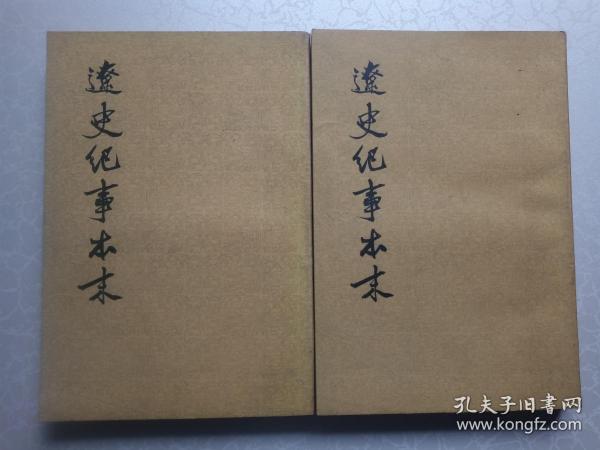 遼史紀事本末
遼史紀事本末
孔夫子旧书网
www.kongfz.com